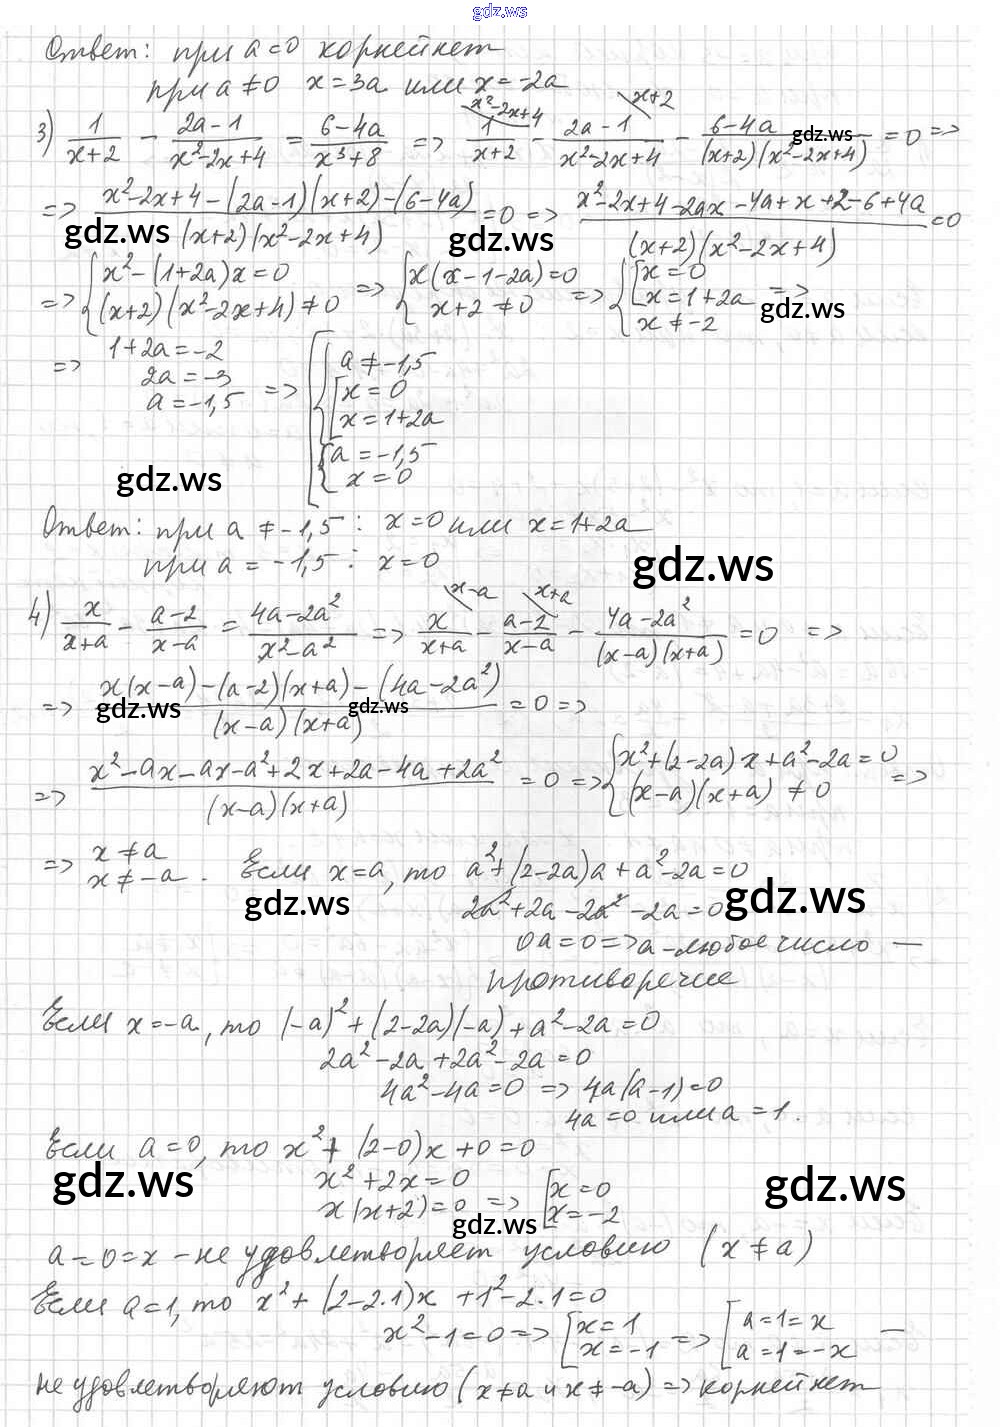 gdz.ws
Ответ: при a=0 корней нет
при a≠0 x=3a или x=-2a
3) 1/(x+2) - (2a-1)/(x²-2x+4) = (6-4a)/(x³+8) => 1/(x+2) \x²-2x+4 - (2a-1)/(x²-2x+4) \x+2 - (6-4a)/((x+2)(x²-2x+4)) = 0 =>
gdz.ws
=> (x²-2x+4-(2a-1)(x+2)-(6-4a))/((x+2)(x²-2x+4)) = 0 => (x²-2x+4-2ax-4a+x+2-6+4a)/((x+2)(x²-2x+4)) = 0
gdz.ws gdz.ws
=> { x²-(1+2a)x=0 (x+2)(x²-2x+4)≠0 => { x(x-1-2a)=0 x+2≠0 => { [ x=0 x=1+2a x≠-2 =>
gdz.ws
=> 1+2a=-2
2a=-3
a=-1,5 => [ { a≠-1,5 [ x=0 x=1+2a
{ a=-1,5 x=0
gdz.ws
Ответ: при a≠-1,5: x=0 или x=1+2a
при a=-1,5: x=0
gdz.ws
4) x/(x+a) - (a-2)/(x-a) = (4a-2a²)/(x²-a²) => x/(x+a) \x-a - (a-2)/(x-a) \x+a - (4a-2a²)/((x-a)(x+a)) = 0 =>
=> (x(x-a)-(a-2)(x+a)-(4a-2a²))/((x-a)(x+a)) = 0 =>
gdz.ws gdz.ws
=> (x²-ax-ax-a²+2x+2a-4a+2a²)/((x-a)(x+a)) = 0 => { x²+(2-2a)x+a²-2a=0 (x-a)(x+a)≠0 =>
=> x≠a x≠-a. Если x=a, то a²+(2-2a)a+a²-2a=0
gdz.ws gdz.ws
2a²+2a-2a²-2a=0
0a=0=>a-любое число —
противоречие
Если x=-a, то (-a)²+(2-2a)(-a)+a²-2a=0
2a²-2a+2a²-2a=0
4a²-4a=0 => 4a(a-1)=0
4a=0 или a=1.
Если a=0, то x²+(2-0)x+0=0
gdz.ws gdz.ws
x²+2x=0
x(x+2)=0 => [ x=0 x=-2
gdz.ws
a=0=x - не удовлетворяет условию (x≠a)
Если a=1, то x²+(2-2·1)x+1²-2·1=0
x²-1=0=> [ x=1 x=-1 => [ a=1=x a=1=-x —
не удовлетворяют условию (x≠a и x≠-a) => корней нет